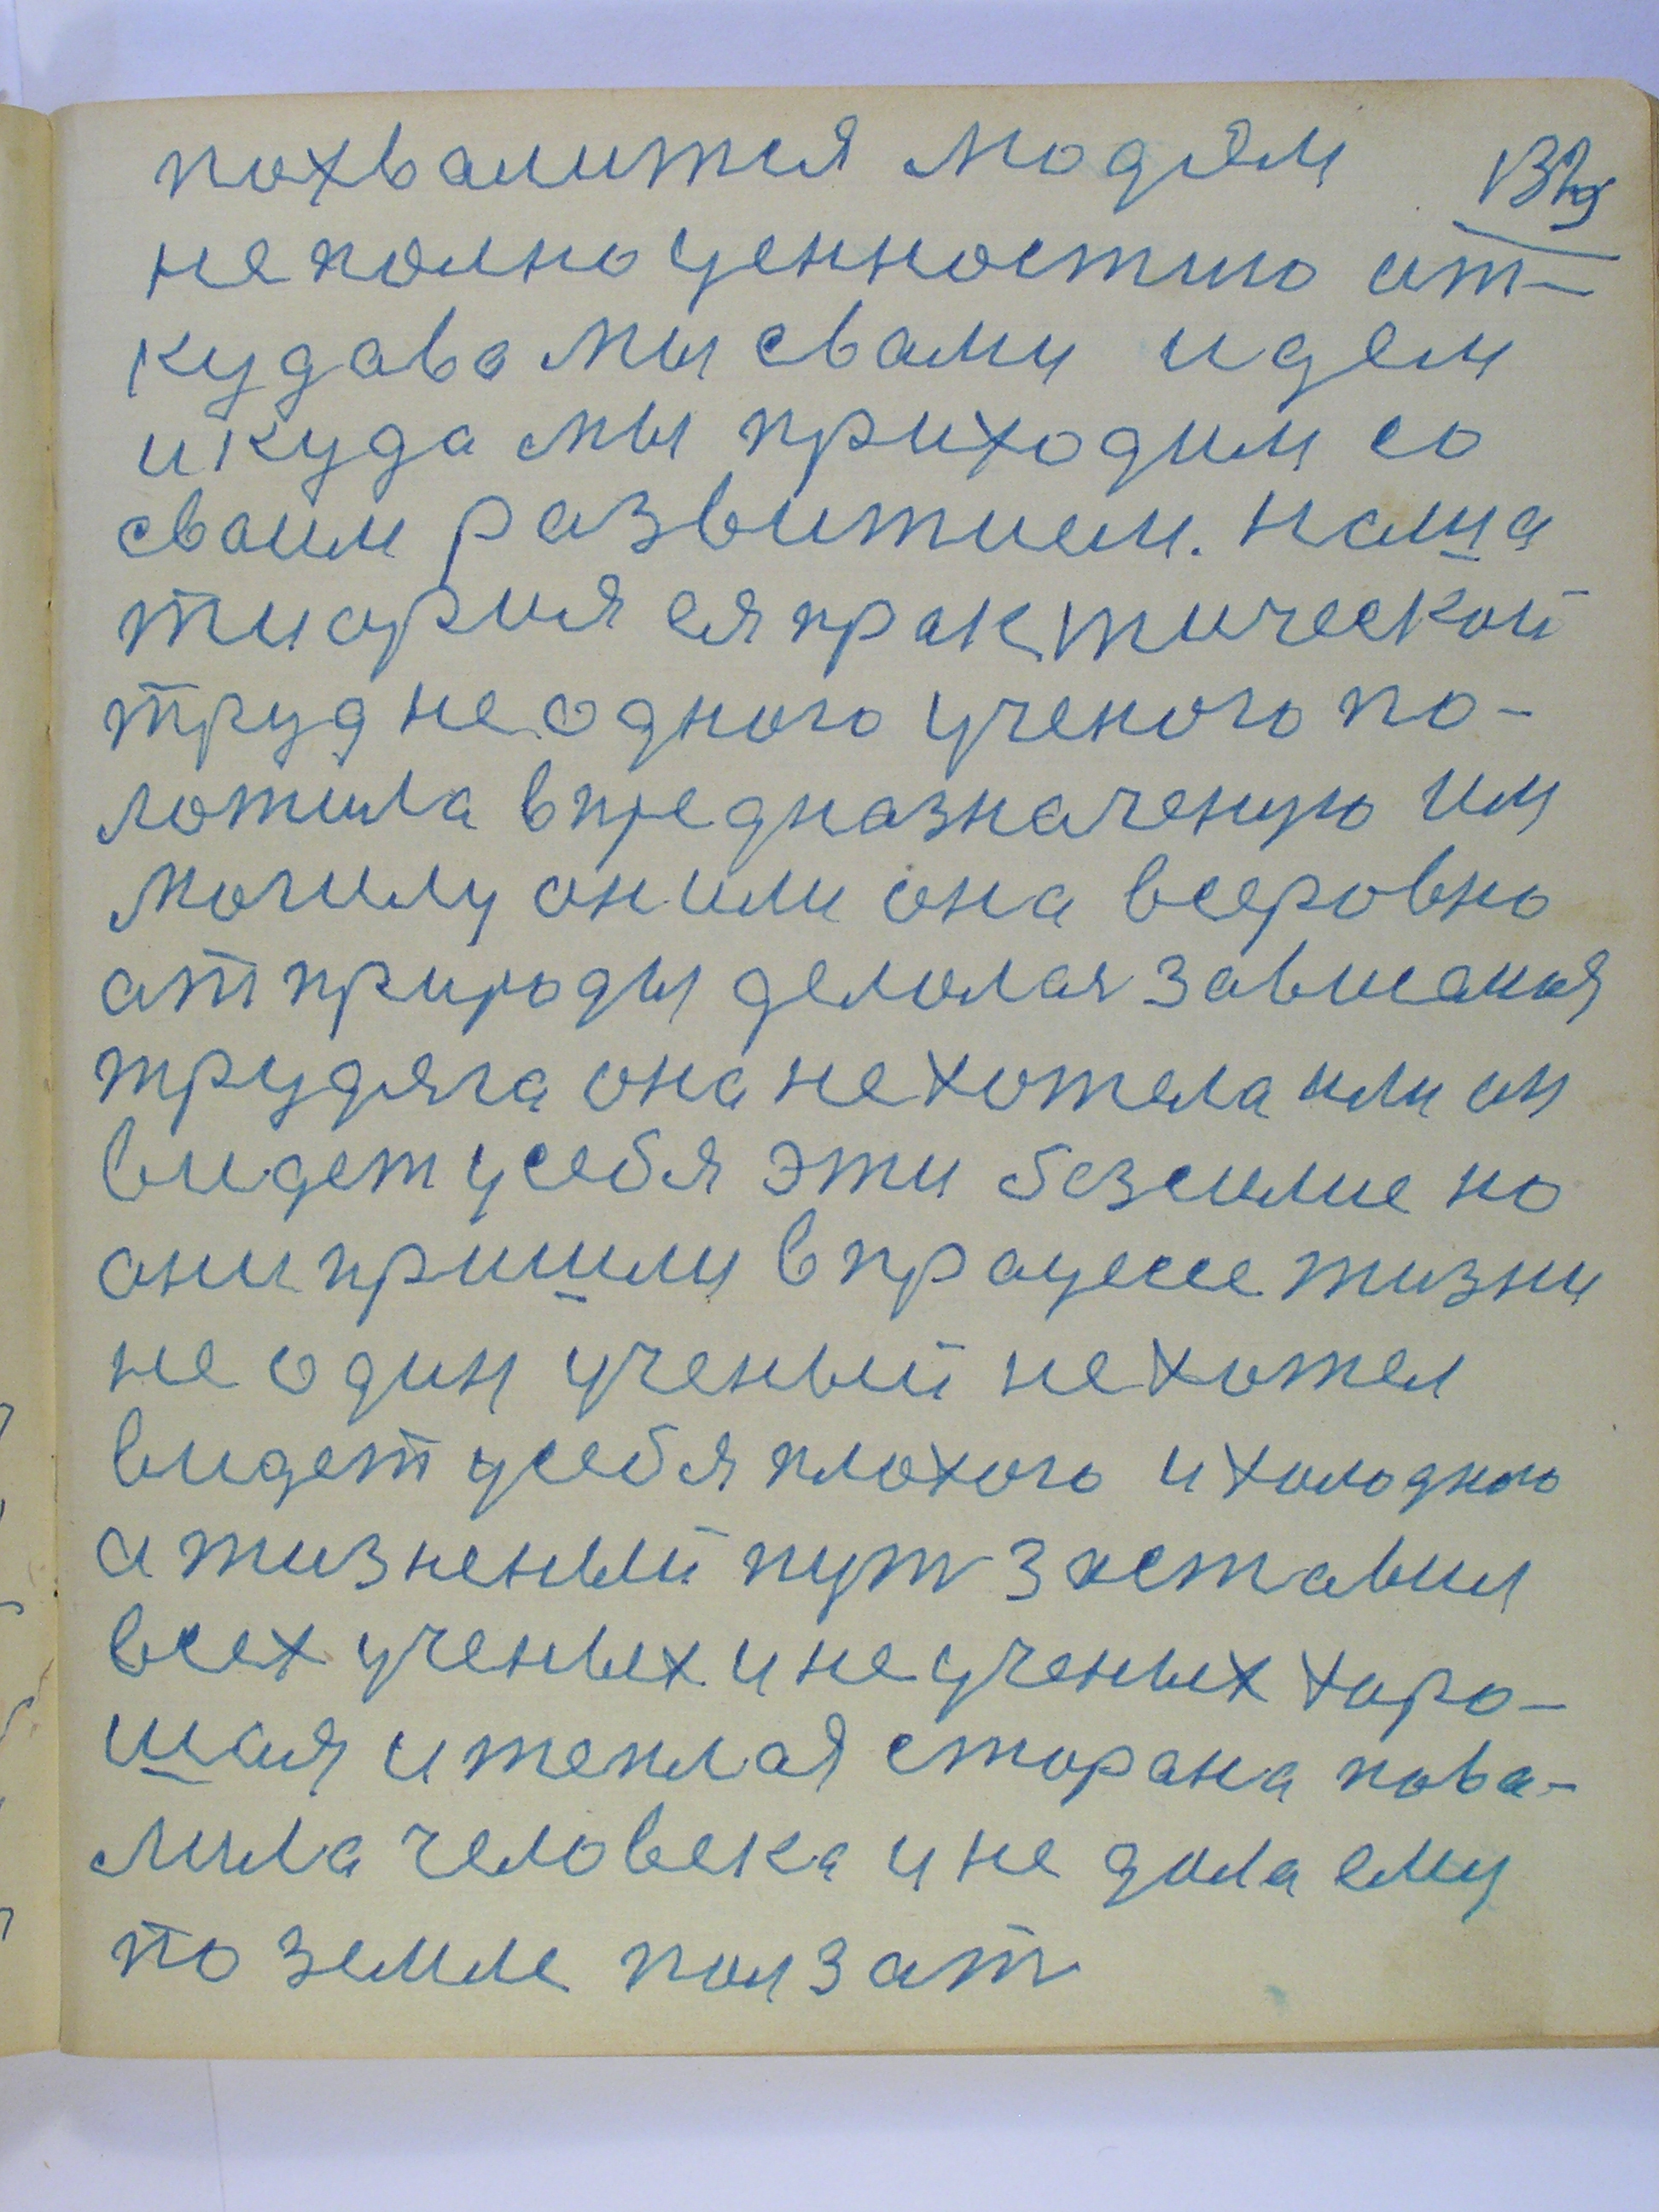 похвалится людям
неполноценностию от-
кудаво мы свами идем
и куда мы приходим со
сваим развитием. наша
тиория ея практической
труд не одного ученого по-
ложила в предназначеную им
могилу он или она всеровно
от природы делолая зависаная
трудяга она не хотела или он
видет у себя эти безсилие но
они пришли в працессе жизни
не один ученый не хотел
видет у себя плохого и холодного
а жизненый пут заставил
всех ученых и не ученых хоро-
шая и теплая сторана пова-
лила человека и не дала ему
по земле ползат